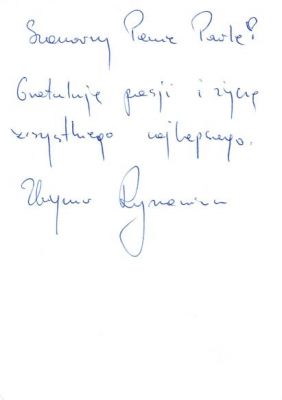 Szanowny Panie Pawle!
Gratuluję pasji i życzę
wszystkiego najlepszego.